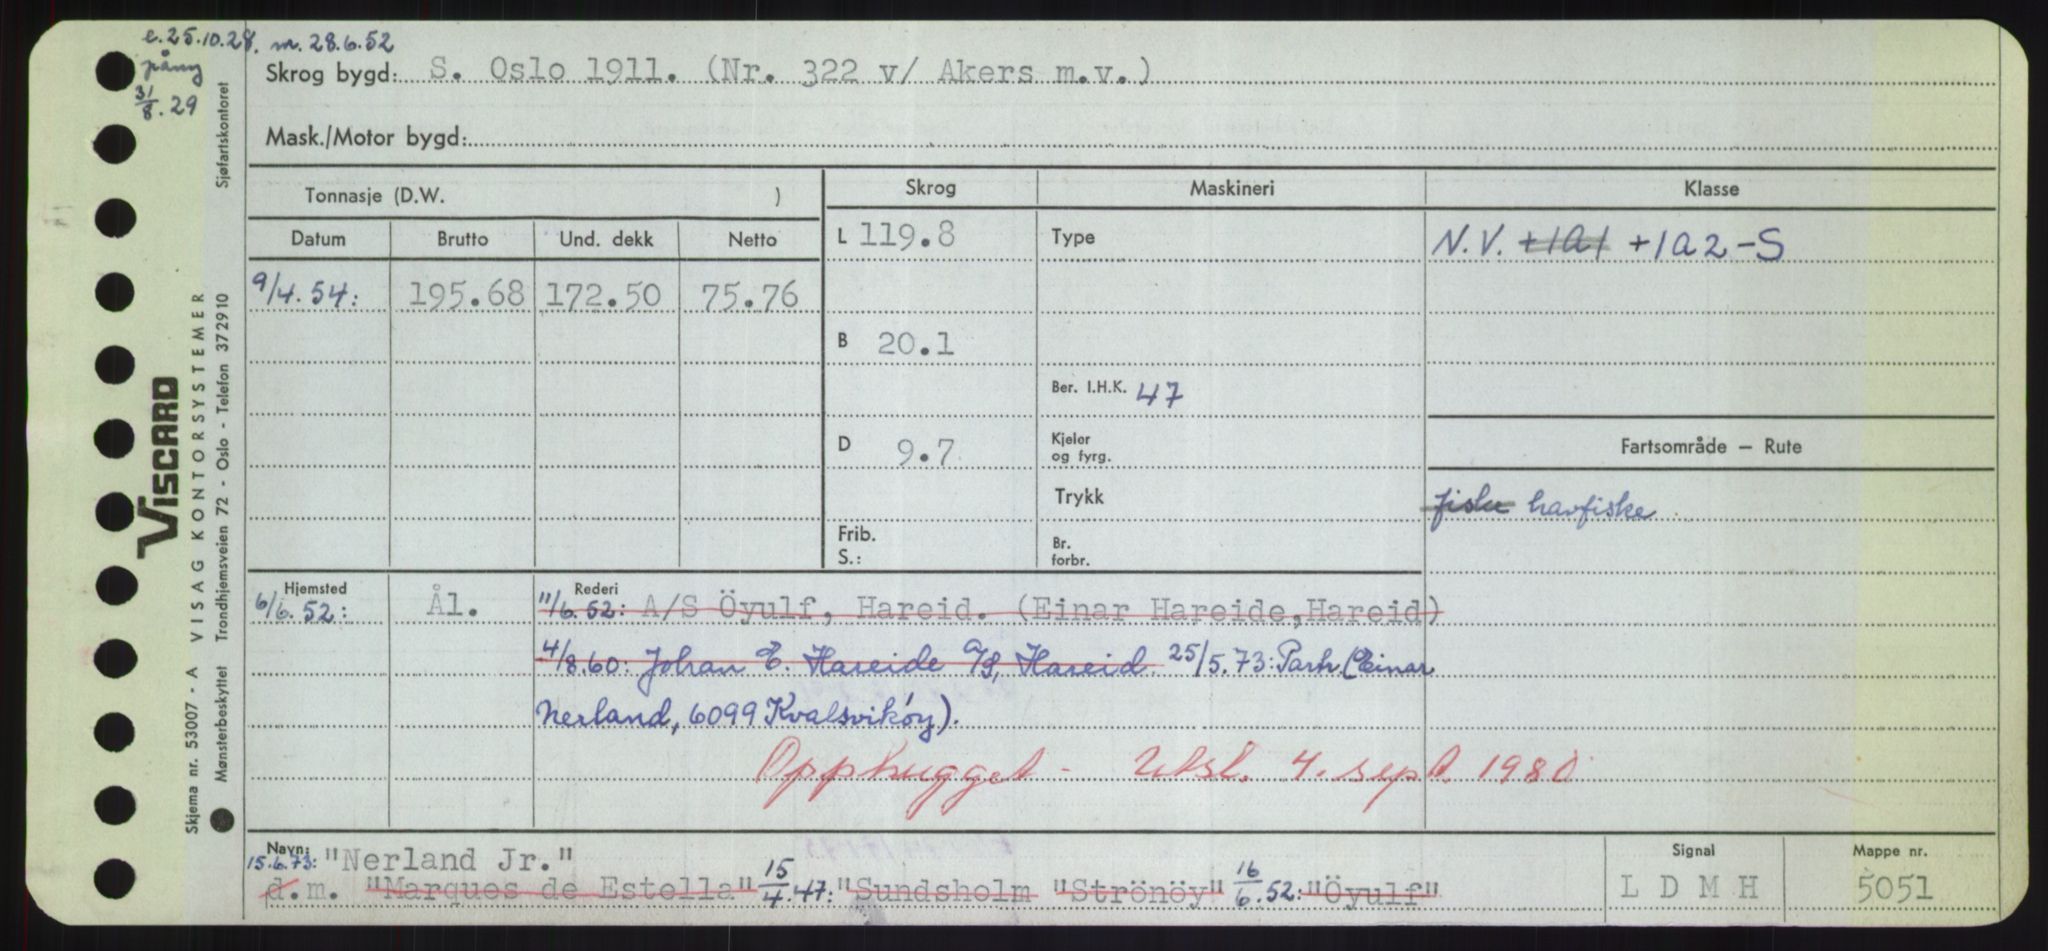 e.25.10.28. m. 28.6.52
påny
31/8.29
Skrog bygd: S. Oslo 1911. (Nr. 322 v/ Akers m.v.)
Mask./Motor bygd:
Tonnasje (D.W. )
Skrog
Maskineri
Klasse
Datum
Brutto
Und. dekk
Netto
L 119.8
Type
N.V. +1A1 +1A2-S
9/4.54:
195.68
172.50
75.76
B 20.1
Ber. I.H.K. 47
D 9.7
Kjeler
og fyrg.
Fartsområde — Rute
Trykk
fiske havfiske
Frib.
S.:
Br.
forbr.
Hjemsted
Rederi
6/6.52: Ål. 11/6.52: A/S Öyulf, Hareid. (Einar Hareide,Hareid)
4/8.60: Johan E. Hareide A/S, Hareid. 25/5.73: Partr. (Einar
Nerland, 6099 Kvalsvikøy).
Opphugget - Utsl. 4. sept. 1980
Navn:
15.6.73: "Nerland Jr."
d.m. "Marques de Estella" 15/4.47: "Sundsholm "Strönöy" 16/6.52: "Öyulf"
Signal
L D M H
Mappe nr.
5051
VISCARD
Skjema nr. 53007 - A VISAG KONTORSYSTEMER
Mønsterbeskyttet Trondhjemsveien 72 - Oslo - Telefon 372910 Sjøfartskontoret